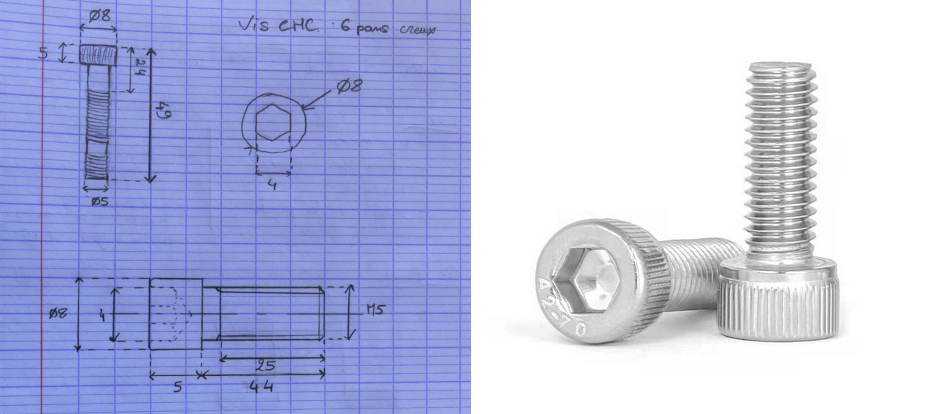 Vis CHC. 6 pans creux
Ø8
5
24
49
Ø5
Ø8
4
Ø8
4
M5
25
5
44
A2-70